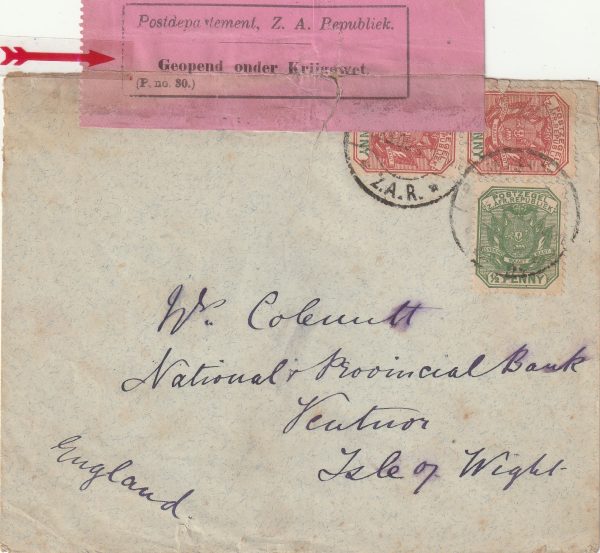 Postdepartement, Z. A. Republiek.
Geopend onder Krijgswet.
(P. no. 80.)
PENNY
PENNY
Z.A.R.
POSTZEGEL
Z.AFR.REPUBLIEK
½ PENNY
National & Provincial Bank
Ventnor
Isle of Wight
England.